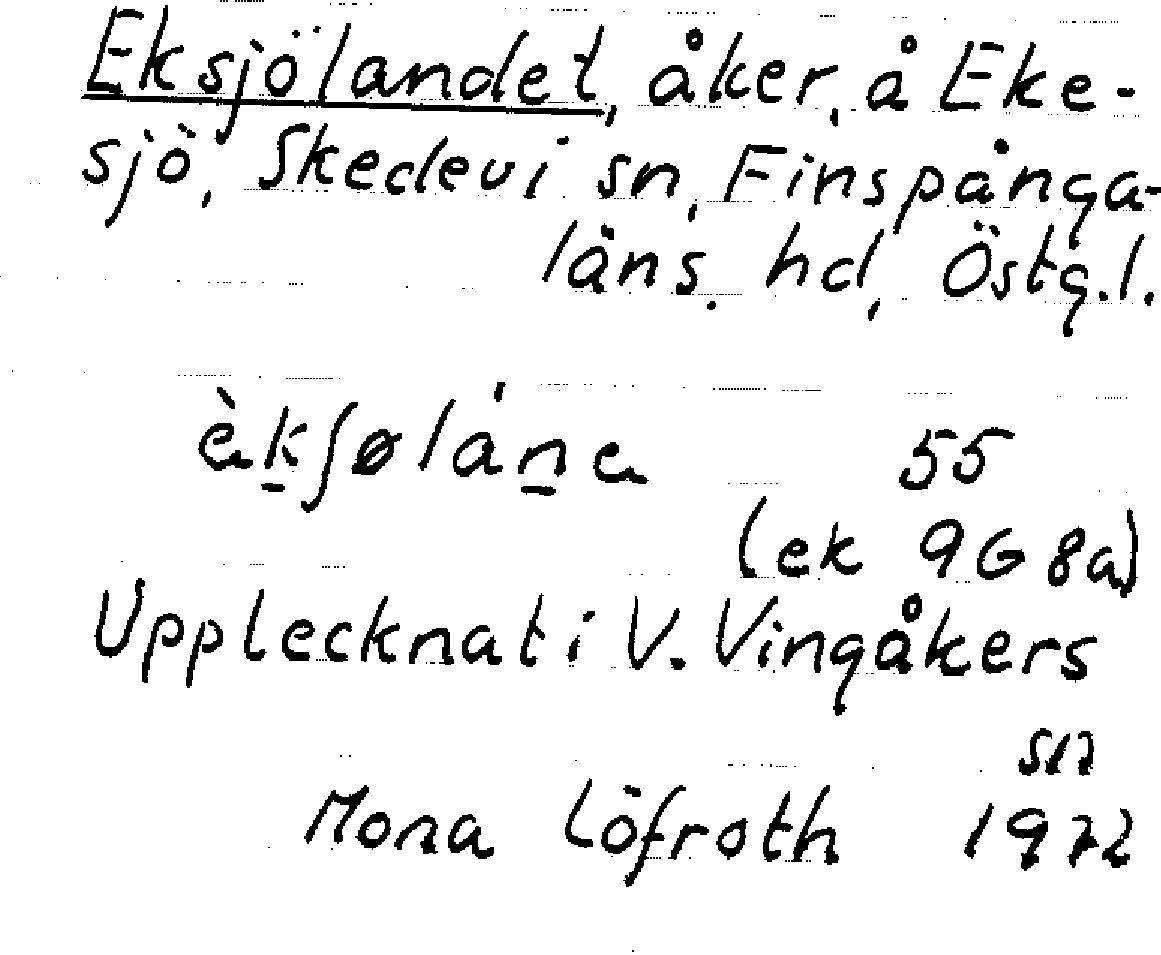 Eksjölandet, åker, å Eke-
sjö, Skedevi sn, Finspånga-
läns. hd, Östg.l.
èkʃølána 55
(ek 9G 8a)
Upplecknat i V. Vingåkers
sn
Mona Löfroth 1972